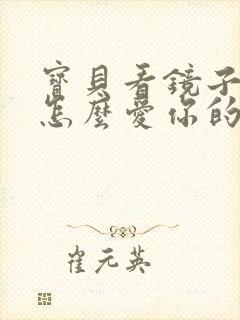 寶貝看鏡子
怎麼愛你的
崔元英